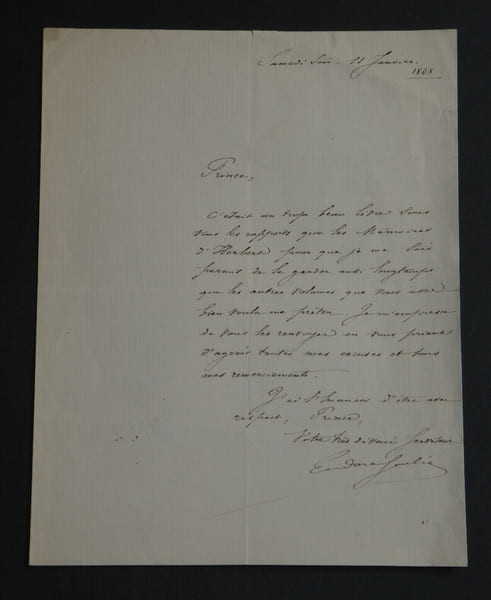 Samedi Soir. 11 Janvier.
1868
Prince,
C'était un trop beau livre sous
tous les rapports que les Mémoires
d'Herbert pour que je me sois
permis de le garder aussi longtemps
que les autres volumes que vous avez
bien voulu me prêter. Je m'empresse
de vous les renvoyer en vous priant
d'agréer toutes mes excuses et tous
mes remerciements.
J'ai l'honneur d'être avec
respect, Prince,
Votre très dévoué Serviteur
Eudore Soulié